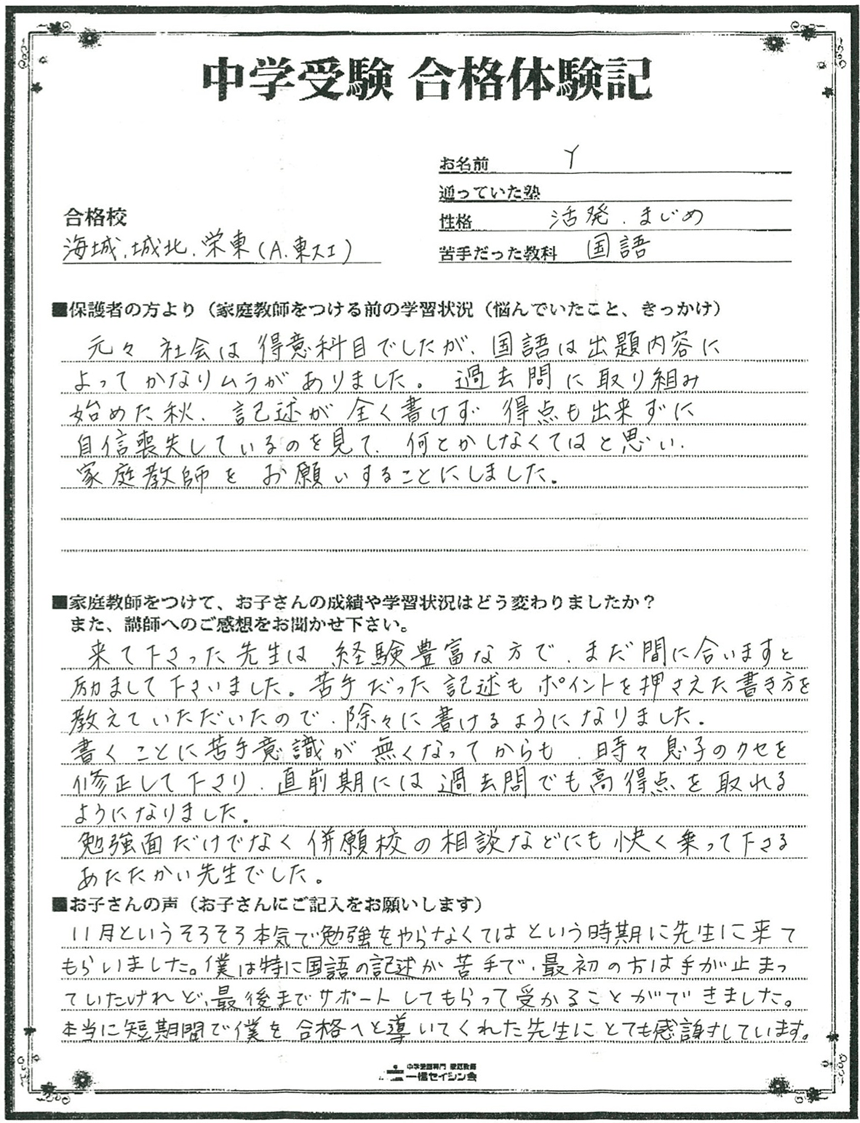 中学受験 合格体験記
お名前 Y
通っていた塾
性格 活発、まじめ
苦手だった教科 国語
合格校
海城、城北、栄東(A、東大I)
■保護者の方より(家庭教師をつける前の学習状況(悩んでいたこと、きっかけ)
元々 社会は 得意科目でしたが、国語は出題内容に
よって かなりムラがありました。過去問に取り組み
始めた秋、記述が全く書けず 得点も出来ずに
自信喪失しているのを見て、何とかしなくてはと思い、
家庭教師を お願いすることにしました。
■家庭教師をつけて、お子さんの成績や学習状況はどう変わりましたか？
また、講師へのご感想をお聞かせ下さい。
来て下さった先生は 経験豊富な方で、まだ間に合いますと
励まして下さいました。苦手だった記述もポイントを押さえた書き方を
教えていただいたので、除々に書けるようになりました。
書くことに苦手意識が無くなってからも、時々息子のクセを
修正して下さり、直前期には過去問でも高得点を取れる
ようになりました。
勉強面だけでなく併願校の相談などにも快く乗って下さる
あたたかい先生でした。
■お子さんの声(お子さんにご記入をお願いします)
11月というそろそろ本気で勉強をやらなくてはという時期に先生に来て
もらいました。僕は特に国語の記述が苦手で、最初の方は手が止まっ
ていたけれど、最後までサポートしてもらって受かることができました。
本当に短期間で僕を合格へと導いてくれた先生にとても感謝しています。
中学受験専門 家庭教師
一橋セイシン会